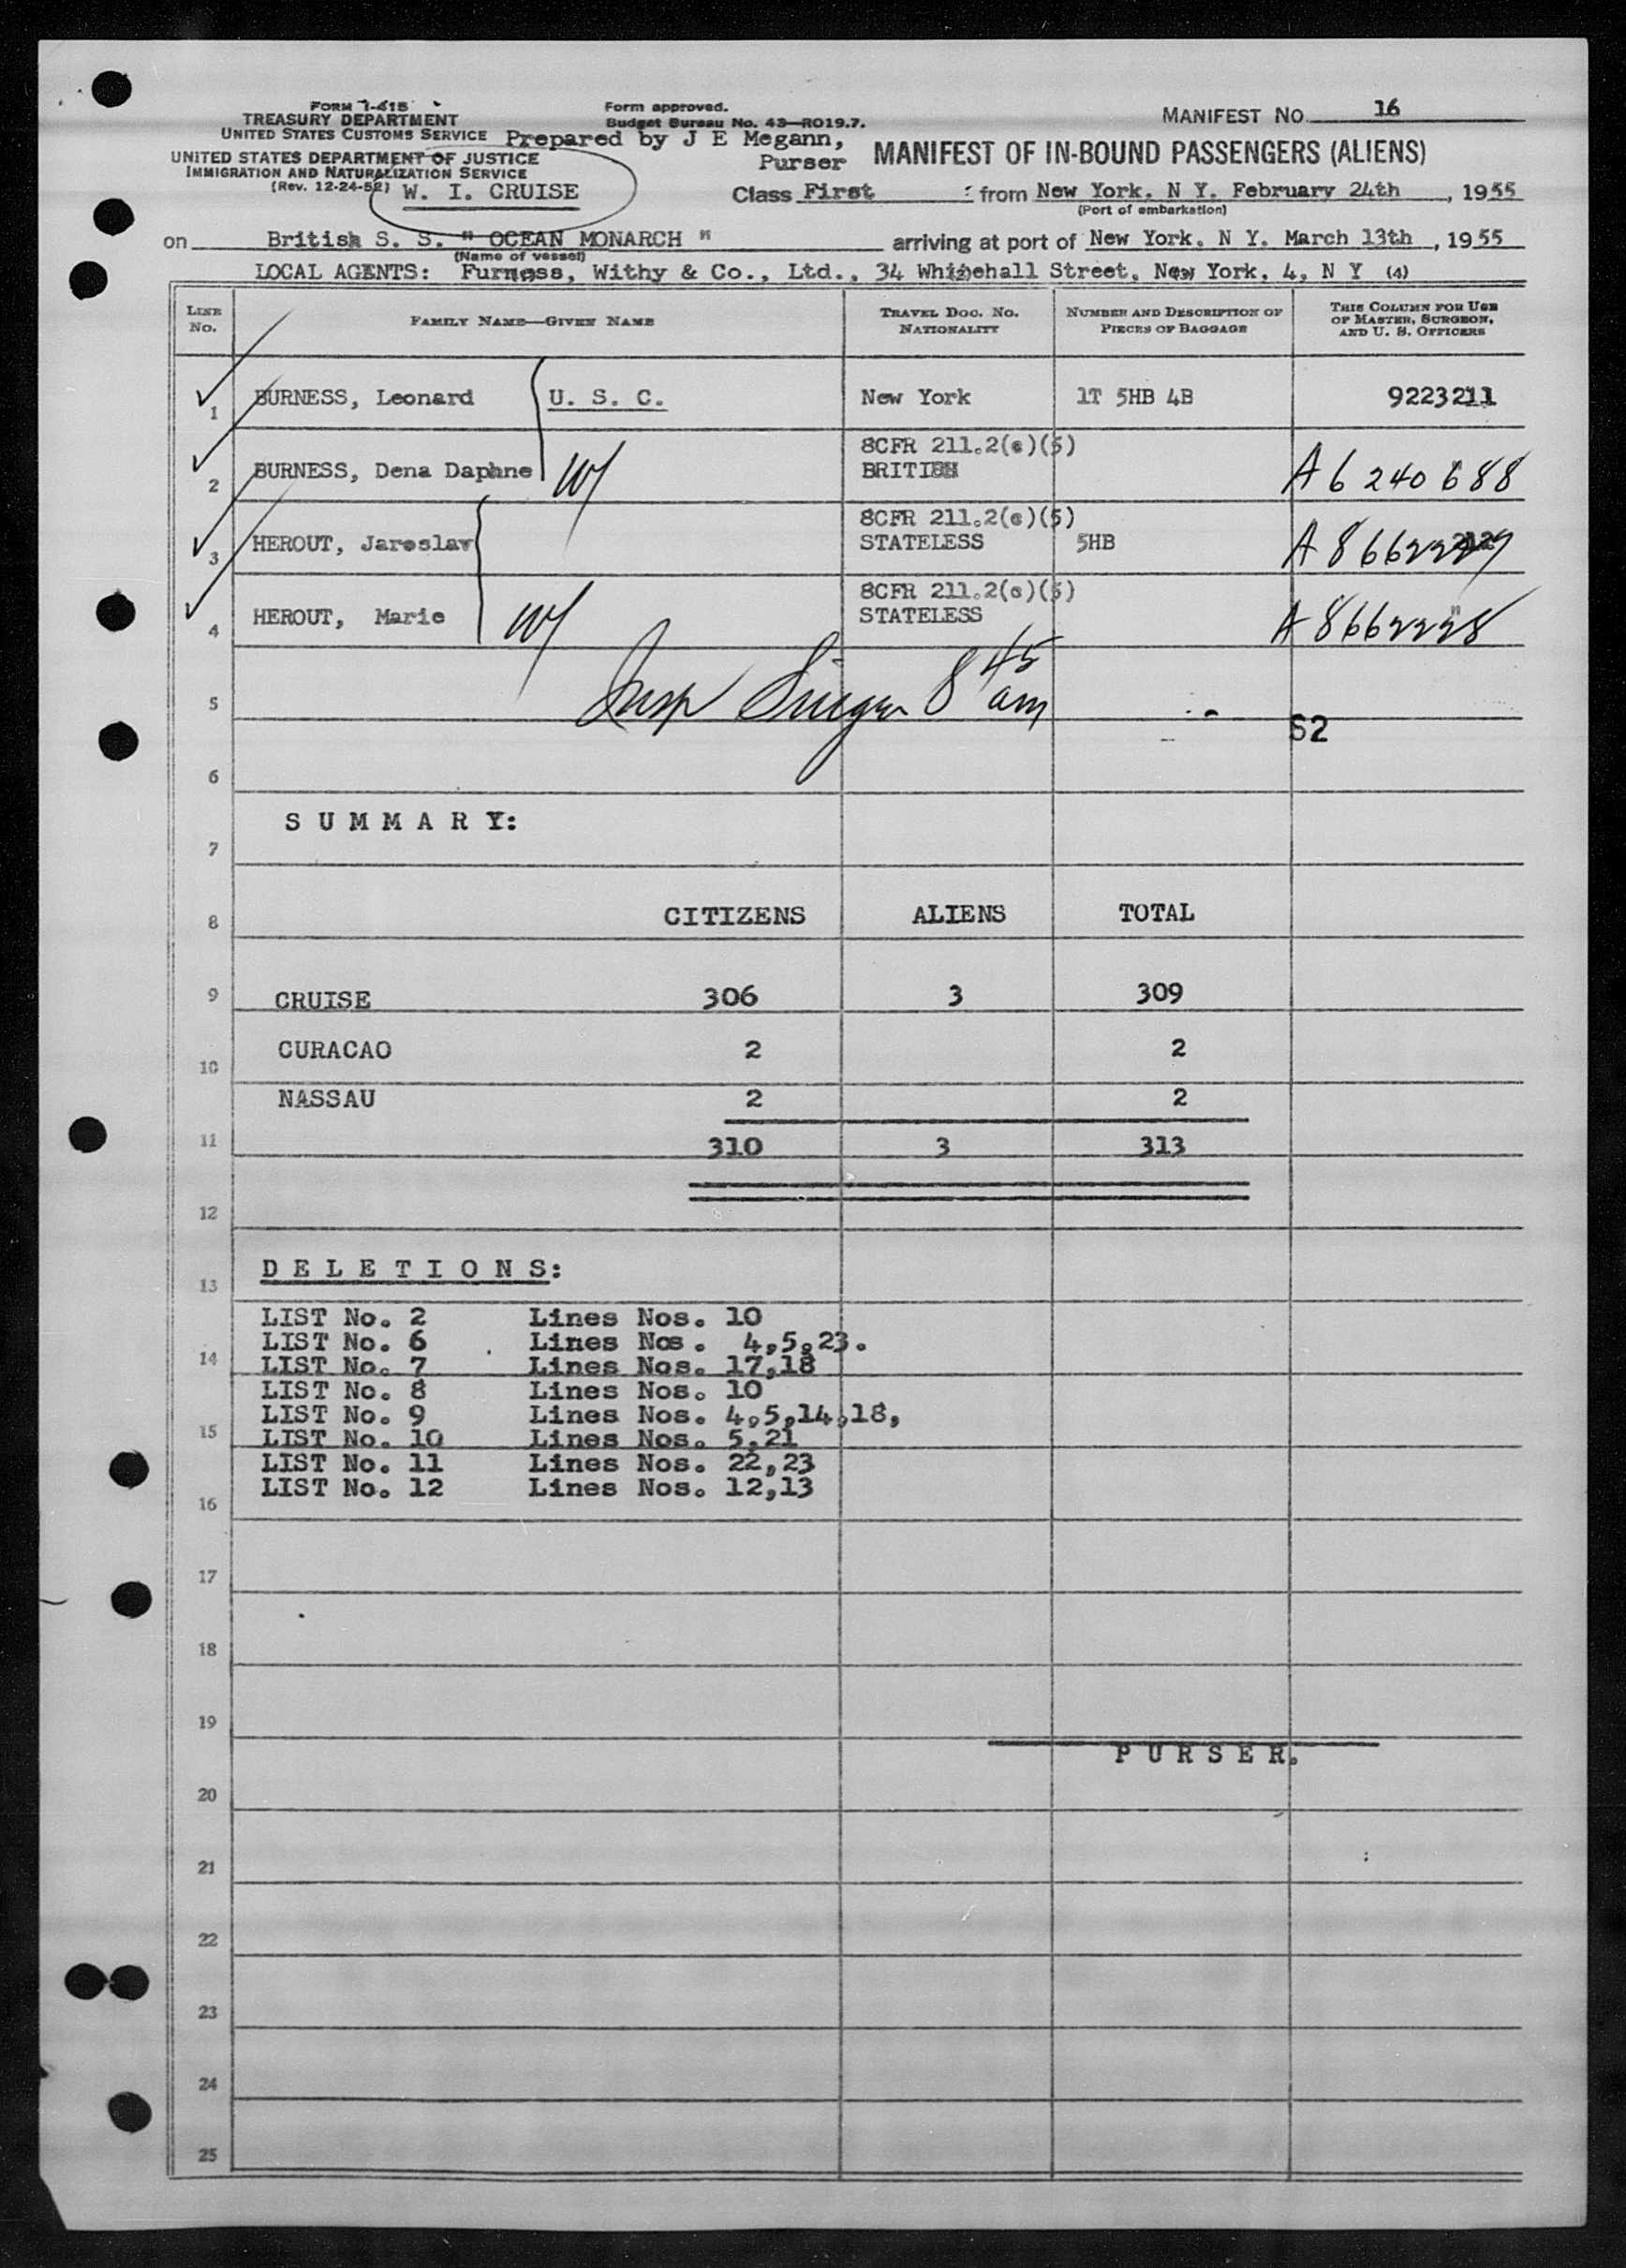 FORM I-415
TREASURY DEPARTMENT
UNITED STATES CUSTOMS SERVICE
UNITED STATES DEPARTMENT OF JUSTICE
IMMIGRATION AND NATURALIZATION SERVICE
(Rev. 12-24-52)
W. I. CRUISE
Form approved.
Budget Bureau No. 43—RO19.7.
Prepared by J E Megann,
Purser
MANIFEST NO. 16
MANIFEST OF IN-BOUND PASSENGERS (ALIENS)
Class First from New York, N Y. February 24th, 1955
(Port of embarkation)
on British S. S. " OCEAN MONARCH " arriving at port of New York, N Y. March 13th, 1955
(Name of vessel)
LOCAL AGENTS: Furness, Withy & Co., Ltd., 34 Whitehall Street, New York, 4, N Y (4)
LINE No. FAMILY NAME—GIVEN NAME TRAVEL DOC. NO. NATIONALITY NUMBER AND DESCRIPTION OF PIECES OF BAGGAGE THIS COLUMN FOR USE OF MASTER, SURGEON, AND U. S. OFFICERS
1 BURNESS, Leonard U. S. C. New York 1T 5HB 4B 9223211
8CFR 211.2(e)(5)
2 BURNESS, Dena Daphne BRITISH A 6 240 688
8CFR 211.2(e)(5)
3 HEROUT, Jaroslav STATELESS 5HB A 8662229
8CFR 211.2(e)(5)
4 HEROUT, Marie STATELESS " A 8662228
5 Insp Singer 8 45 am
52
6
S U M M A R Y:
7
8 CITIZENS ALIENS TOTAL
9 CRUISE 306 3 309
10 CURACAO 2 2
NASSAU 2 2
11 310 3 313
12
D E L E T I O N S:
13
LIST No. 2 Lines Nos. 10
LIST No. 6 Lines Nos. 4,5,23.
14 LIST No. 7 Lines Nos. 17,18
LIST No. 8 Lines Nos. 10
LIST No. 9 Lines Nos. 4,5,14,18,
15 LIST No. 10 Lines Nos. 5,21
LIST No. 11 Lines Nos. 22,23
LIST No. 12 Lines Nos. 12,13
16
17
18
19
P U R S E R.
20
21
22
23
24
25